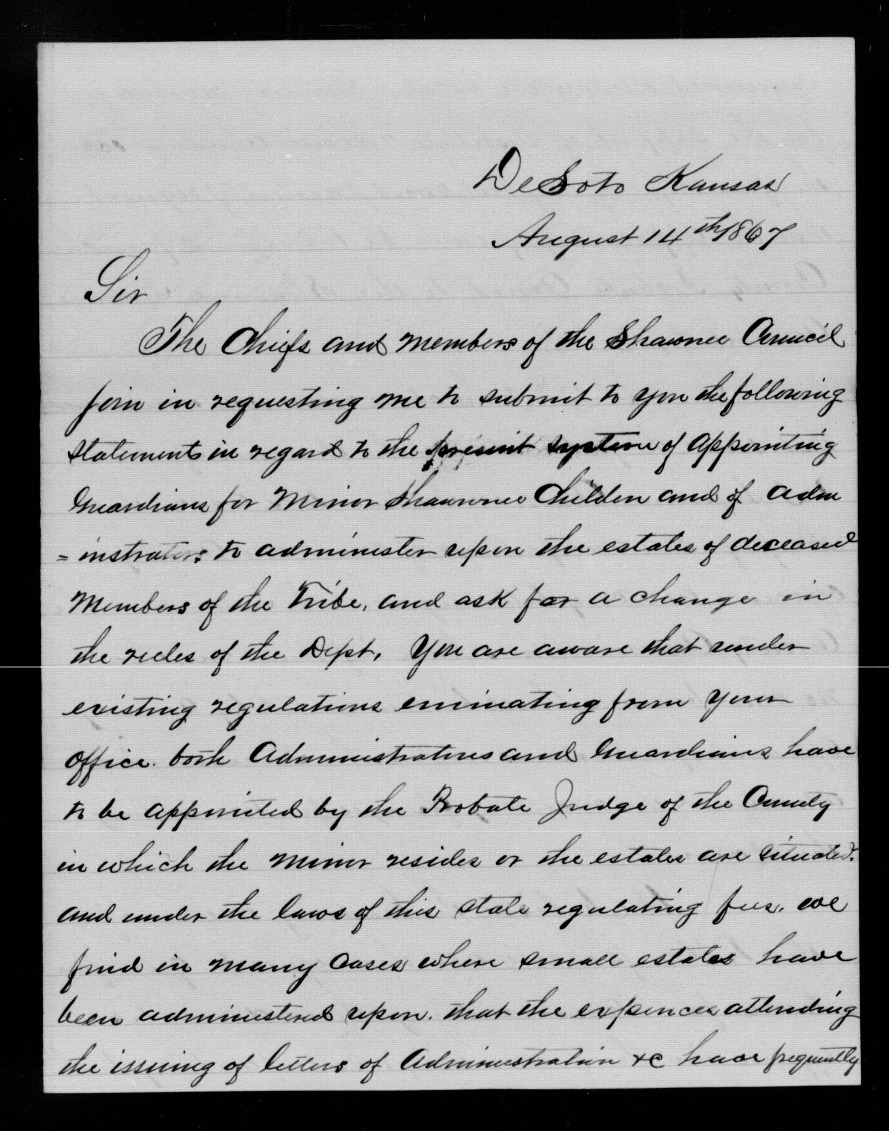 DeSoto Kansas
August 14th 1867
Sir
The Chiefs and members of the Shawnee Council
join in requesting me to submit to you the following
statements in regard to the present system of appointing
Guardians for Minor Shawnee Childen and of adm
=instrators to administer upon the estates of deceased
Members of the Tribe, and ask for a change in
the rules of the Dept. You are aware that under
existing regulations eminating from your
office. both Administrators and Guardians have
to be appointed by the Probate Judge of the County
in which the minor resides or the estates are situated.
and under the laws of this state regulating fees. we
find in many cases where small estates have
been administered upon. that the expences attending
the issuing of letters of Administration &c have frequently